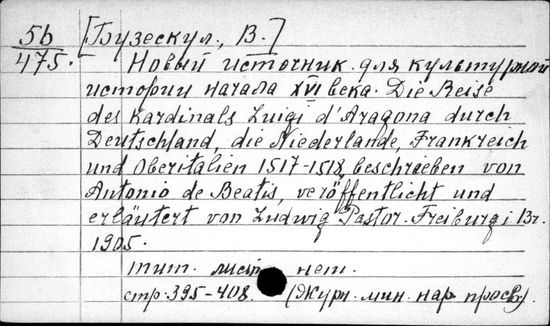 5b
475.
[Бузескул, В.]
Новый источник для культурной
истории начала XVI века. Die Reise
des Kardinals Luigi d'Aragona durch
Deutschland, die Niederlande, Frankreich
und Oberitalien 1517-1518, beschrieben von
Antonio de Beatis, veröffentlicht und
erläutert von Ludwig Pastor. Freiburg i Br.
1905.
тит. лист нет.
стр. 395-408. (Журн. мин. нар. просв.).